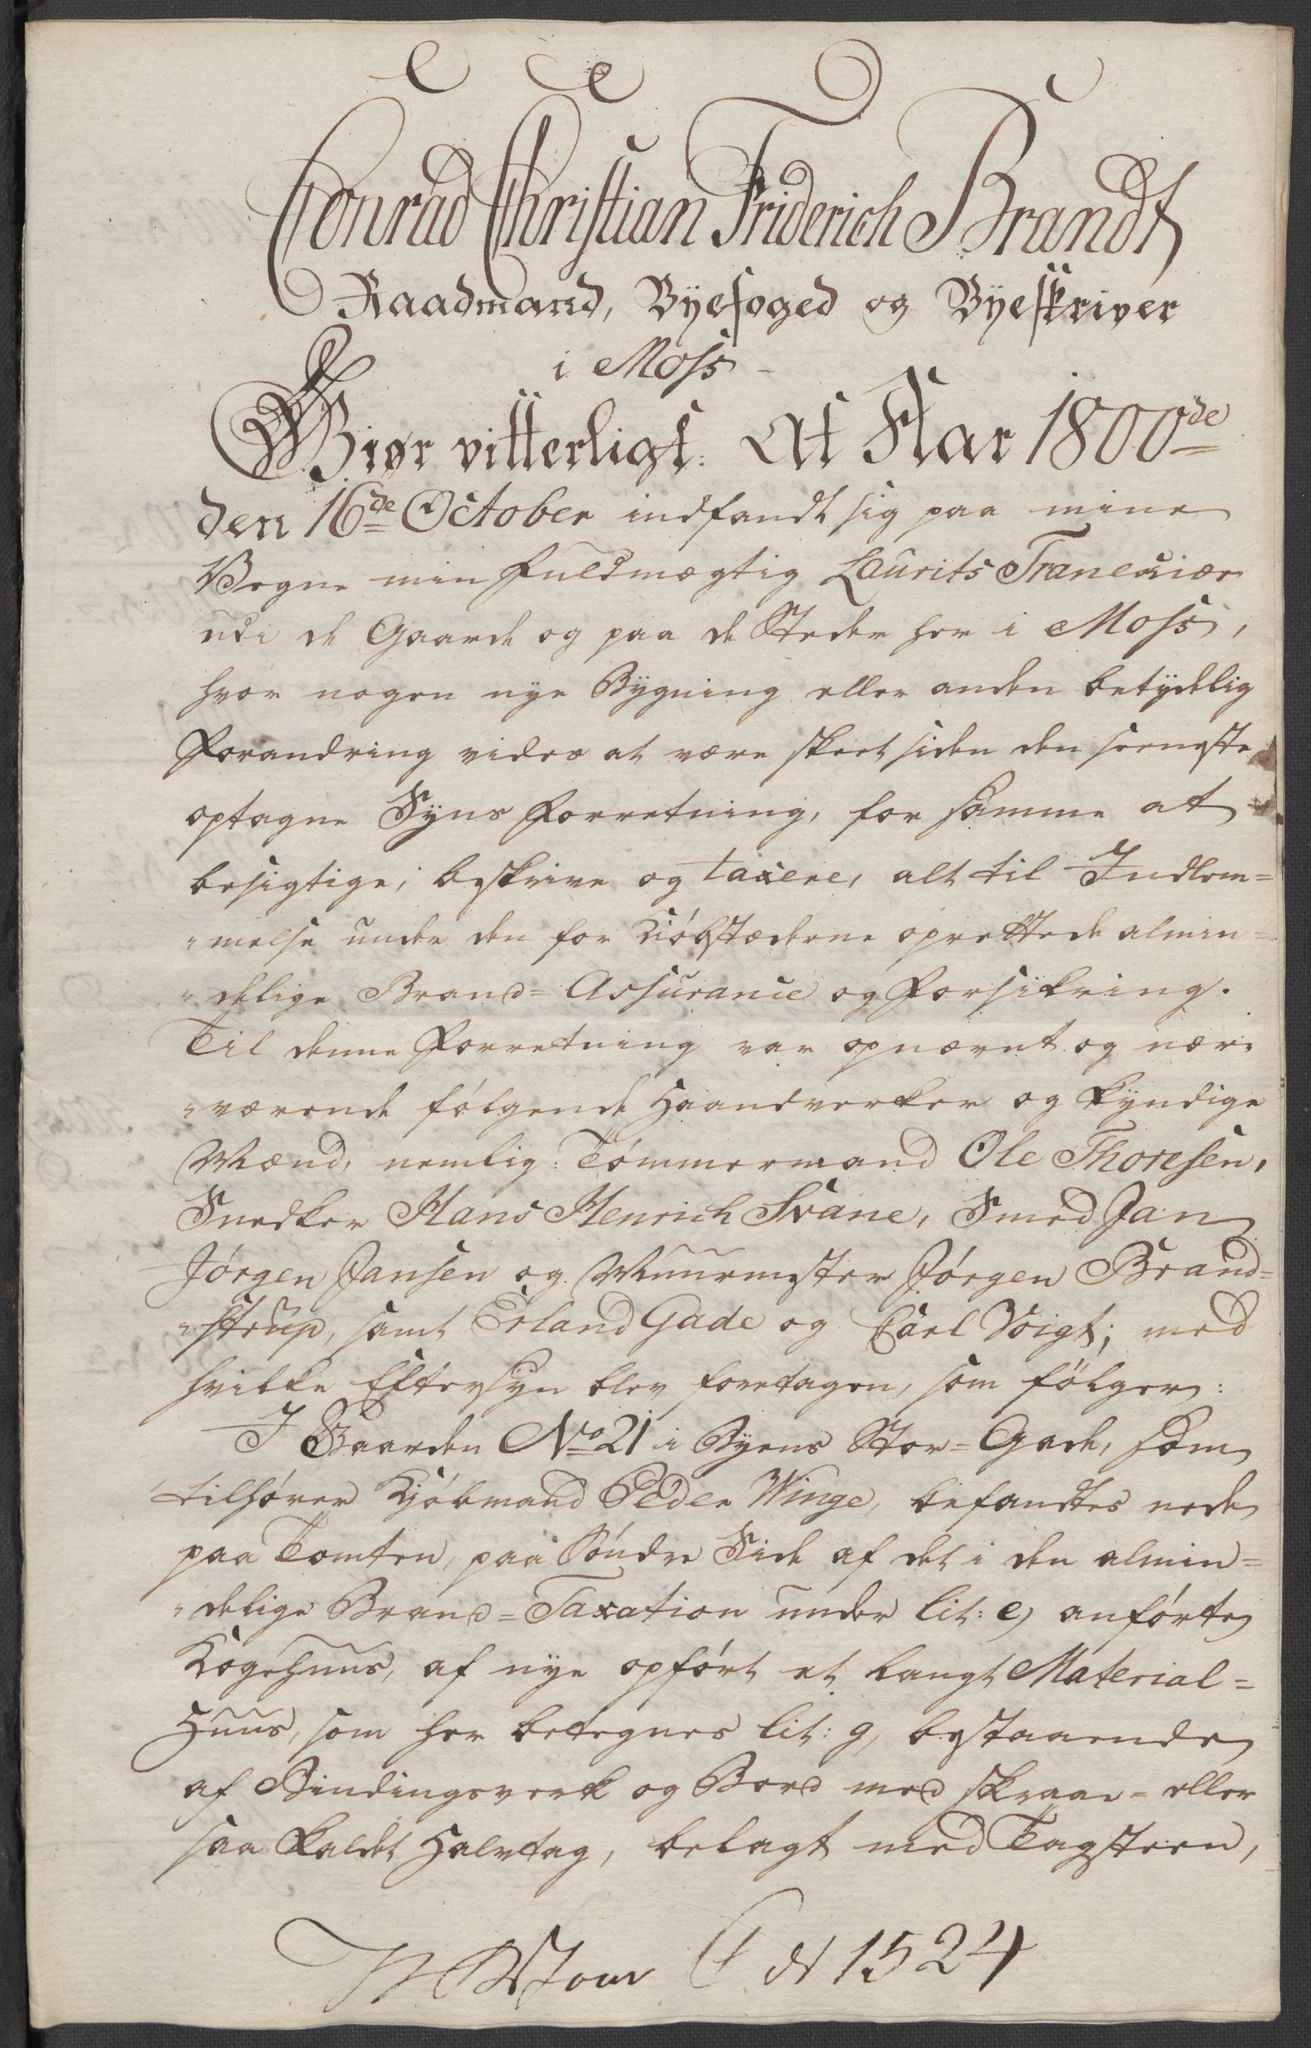 Conrad Christian Friderich Brandt
Raadmand, Byefoged og Byeskriver
i Moss
Giør vitterligt: At Aar 1800de
den 16de October indfandt sig paa mine
Vegne min Fuldmægtig Laurits Tranekiær
udi de Gaarde og paa de Steder her i Moss,
hvor nogen nye Bygning eller anden betydelig
Forandring vides at være skeet siden den seeneste
optagne Syns Forretning, for samme at
besigtige, beskrive og taxere, alt til Indlem=
"melse under den for Kiøbstæderne oprettede almin=
"delige Brand=Assurance og Forsikring.
Til denne Forretning var opnævnt og nær=
"værende følgende Haandverker og kyndige
Mænd, nemlig: Tømmermand Ole Thoresen,
Snedker Hans Henrich Svane, Smed Jan
Jørgen Jansen og Muurmester Jørgen Brand=
"strup, samt Erland Gade og Carl Voigt; med
hvilke Eftersyn blev foretagen, som følger:
I Gaarden No 21 i Byens Stor=Gade, som
tilhører Kjøbmand Peder Winge, befandtes nede
paa Tomten, paa Søndre Side af det i den almin=
"delige Brand=Taxation under lit: e) anførte
Kogehuus, af nye opført et langt Material=
Huus, som her betegnes lit: g, bestaaende
af Bindingsverk og Bord med skraae= eller
saa kaldet Halvtag, belagt med Tagsteen,
1524